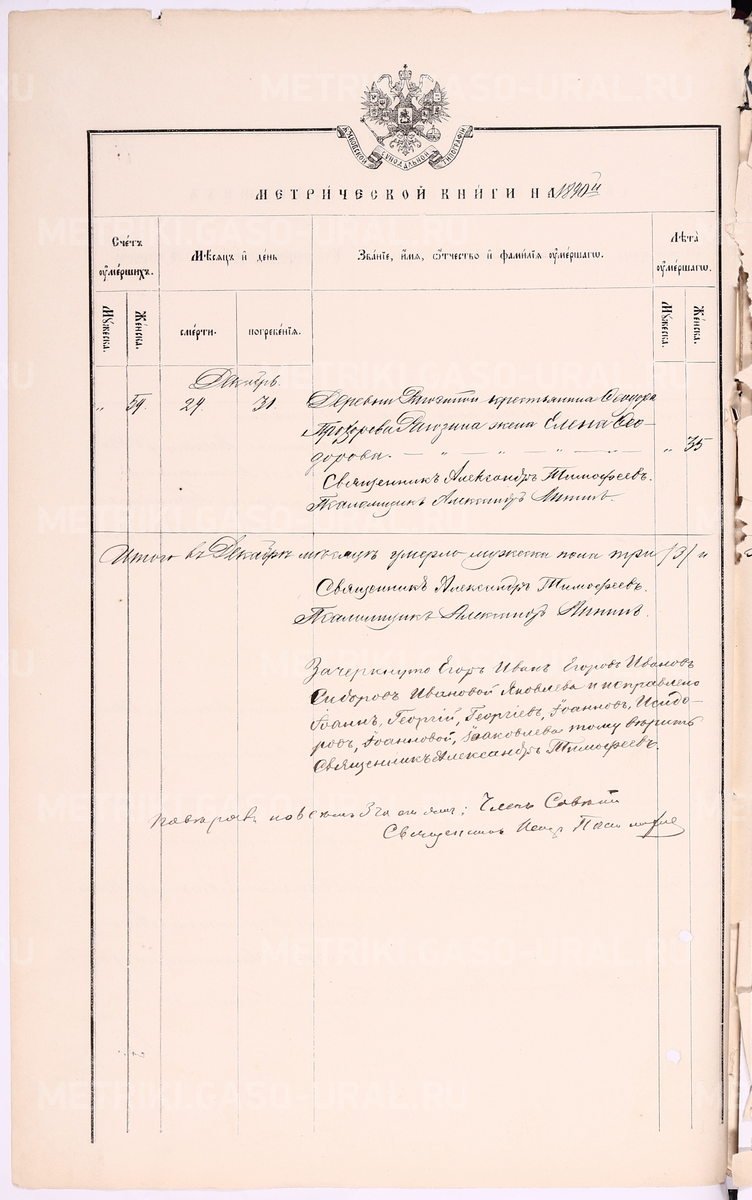 МОСКОВСКОЙ СУНОДАЛЬНОЙ ТИПОГРАФІИ
МЕТРИ́ЧЕСКОЙ КНИ́ГИ НА 1890й
Сче́тъ ᲂу҆ме́ршихъ.
Мѣ́сяцъ и҆ де́нь
Зва́нїе, и҆́мя, ѻ҆́тчество и҆ фами́лїя ᲂу҆ме́ршагѡ.
Лѣ́та ᲂу҆ме́ршагѡ.
Мꙋ́жеска.
Же́нска.
сме́рти.
погребе́нїя.
Мꙋ́жеска.
Же́нска.
Декабрь.
„ 59. 29. 31. Деревни крестьянина Ѳеодора
жена Елена Ѳео-
дорова. — „ — „ — „ — „ — „ 35
Священникъ Александръ Тимофеевъ.
Псаломщикъ Александръ
Итого въ Декабрѣ мѣсяцѣ умерло мужеска пола три /3/ и
Священникъ Александръ Тимофеевъ.
Псаломщикъ Александръ
Зачеркнуто Егоръ Иванъ Егоровъ Ивановъ
Сидоровъ Ивановой Яковлева и исправлено
Іоаннъ, Георгій, Георгіевъ, Іоанновъ, Исидо-
ровъ, Іоанновой, Іаковлева тому вѣрить
Священникъ Александръ Тимофеевъ.
Членъ
Священникъ
METRIKI.GASO-URAL.RU